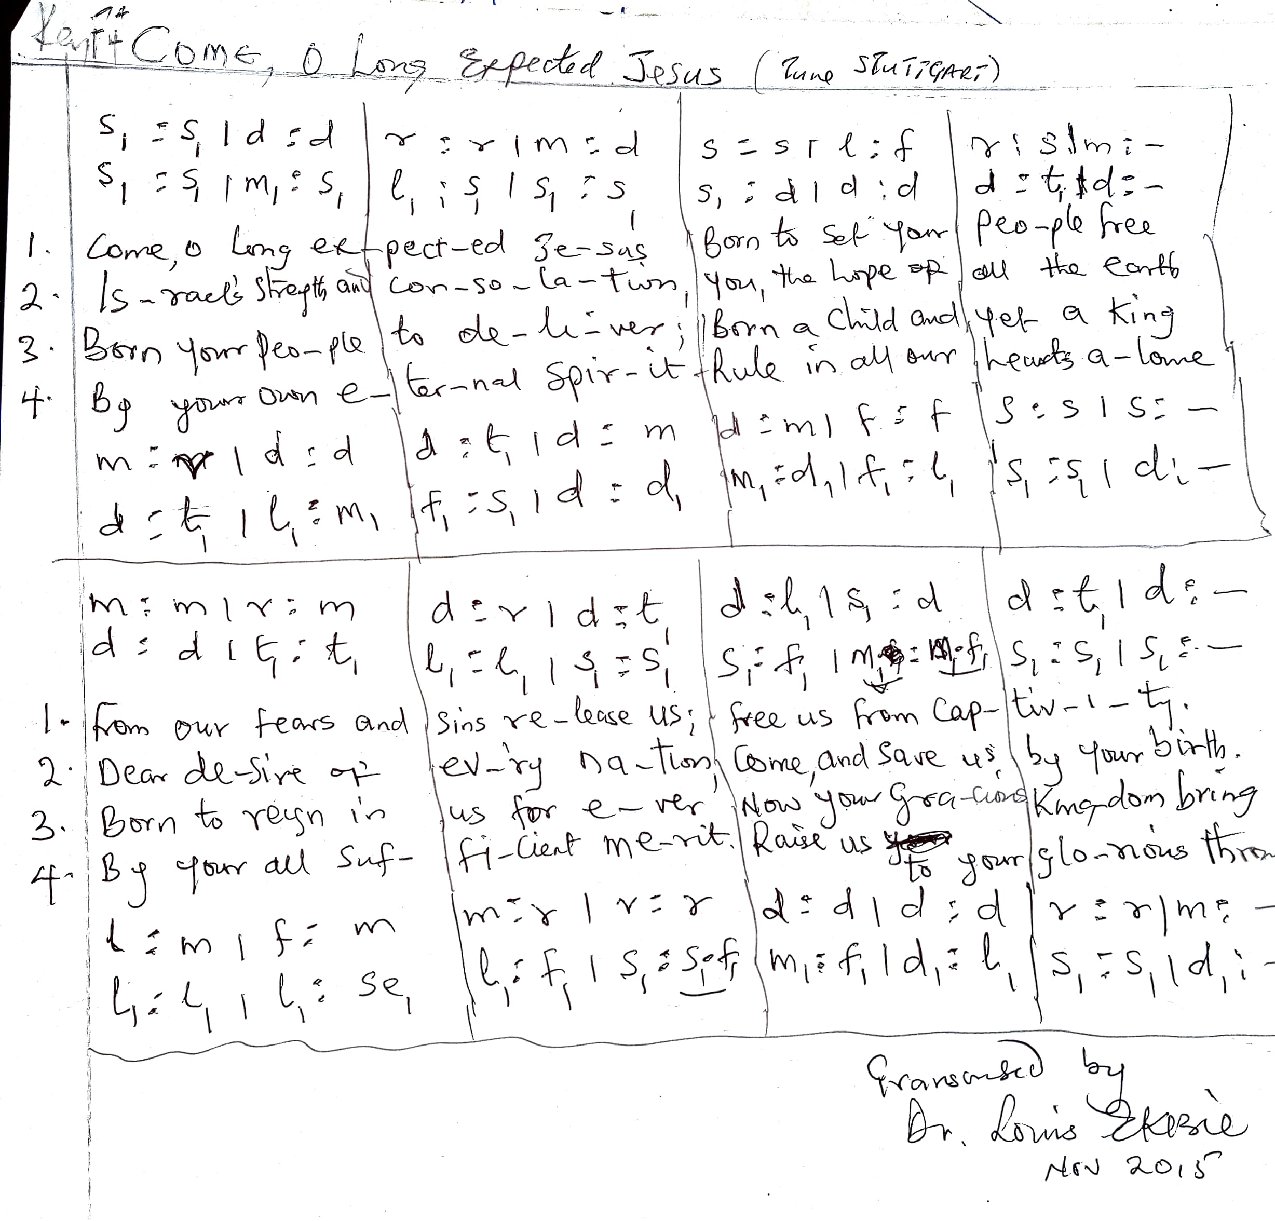 Key F 4/4 Come, O Long Expected Jesus (Tune STUTTGART)
s₁ : s₁ | d : d | r : r | m : d | s : s | l : f | r : s | m : -
s₁ : s₁ | m₁ : s₁ | l₁ : s₁ | s₁ : s₁ | s₁ : d | d : d | d : t₁ | d : -
1. Come, o long ex-pect-ed Je-sus Born to set your peo-ple free
2. Is-rael's Stregth and con-so-la-tion, you, the hope of all the earth
3. Born your peo-ple to de-li-ver; Born a child and yet a King
4. By your own e-ter-nal Spir-it Rule in all our hearts a-lone
m : r | d : d | d : t₁ | d : m | d : m | f : f | s : s | s : -
d : t₁ | l₁ : m₁ | f₁ : s₁ | d : d₁ | m₁ : d₁ | f₁ : l₁ | s₁ : s₁ | d : -
m : m | r : m | d : r | d : t₁ | d : l₁ | s₁ : d | d : t₁ | d : -
d : d | t₁ : t₁ | l₁ : l₁ | s₁ : s₁ | s₁ : f₁ | m₁ : m₁.f₁ | s₁ : s₁ | s₁ : -
1. from our fears and sins re-lease us; free us from Cap-tiv-i-ty.
2. Dear de-sire of ev-'ry na-tion, Come, and save us, by your birth.
3. Born to reign in us for e-ver, Now your gra-cious Kingdom bring
4. By your all Suf-fi-cient me-rit. Raise us to your glo-rious thron
l : m | f : m | m : r | r : r | d : d | d : d | r : r | m : -
l₁ : l₁ | l₁ : se₁ | l₁ : f₁ | s₁ : s₁.f₁ | m₁ : f₁ | d₁ : l₁ | s₁ : s₁ | d₁ : -
Transcribed by
Dr. Louis Ekebie
Nov 2015